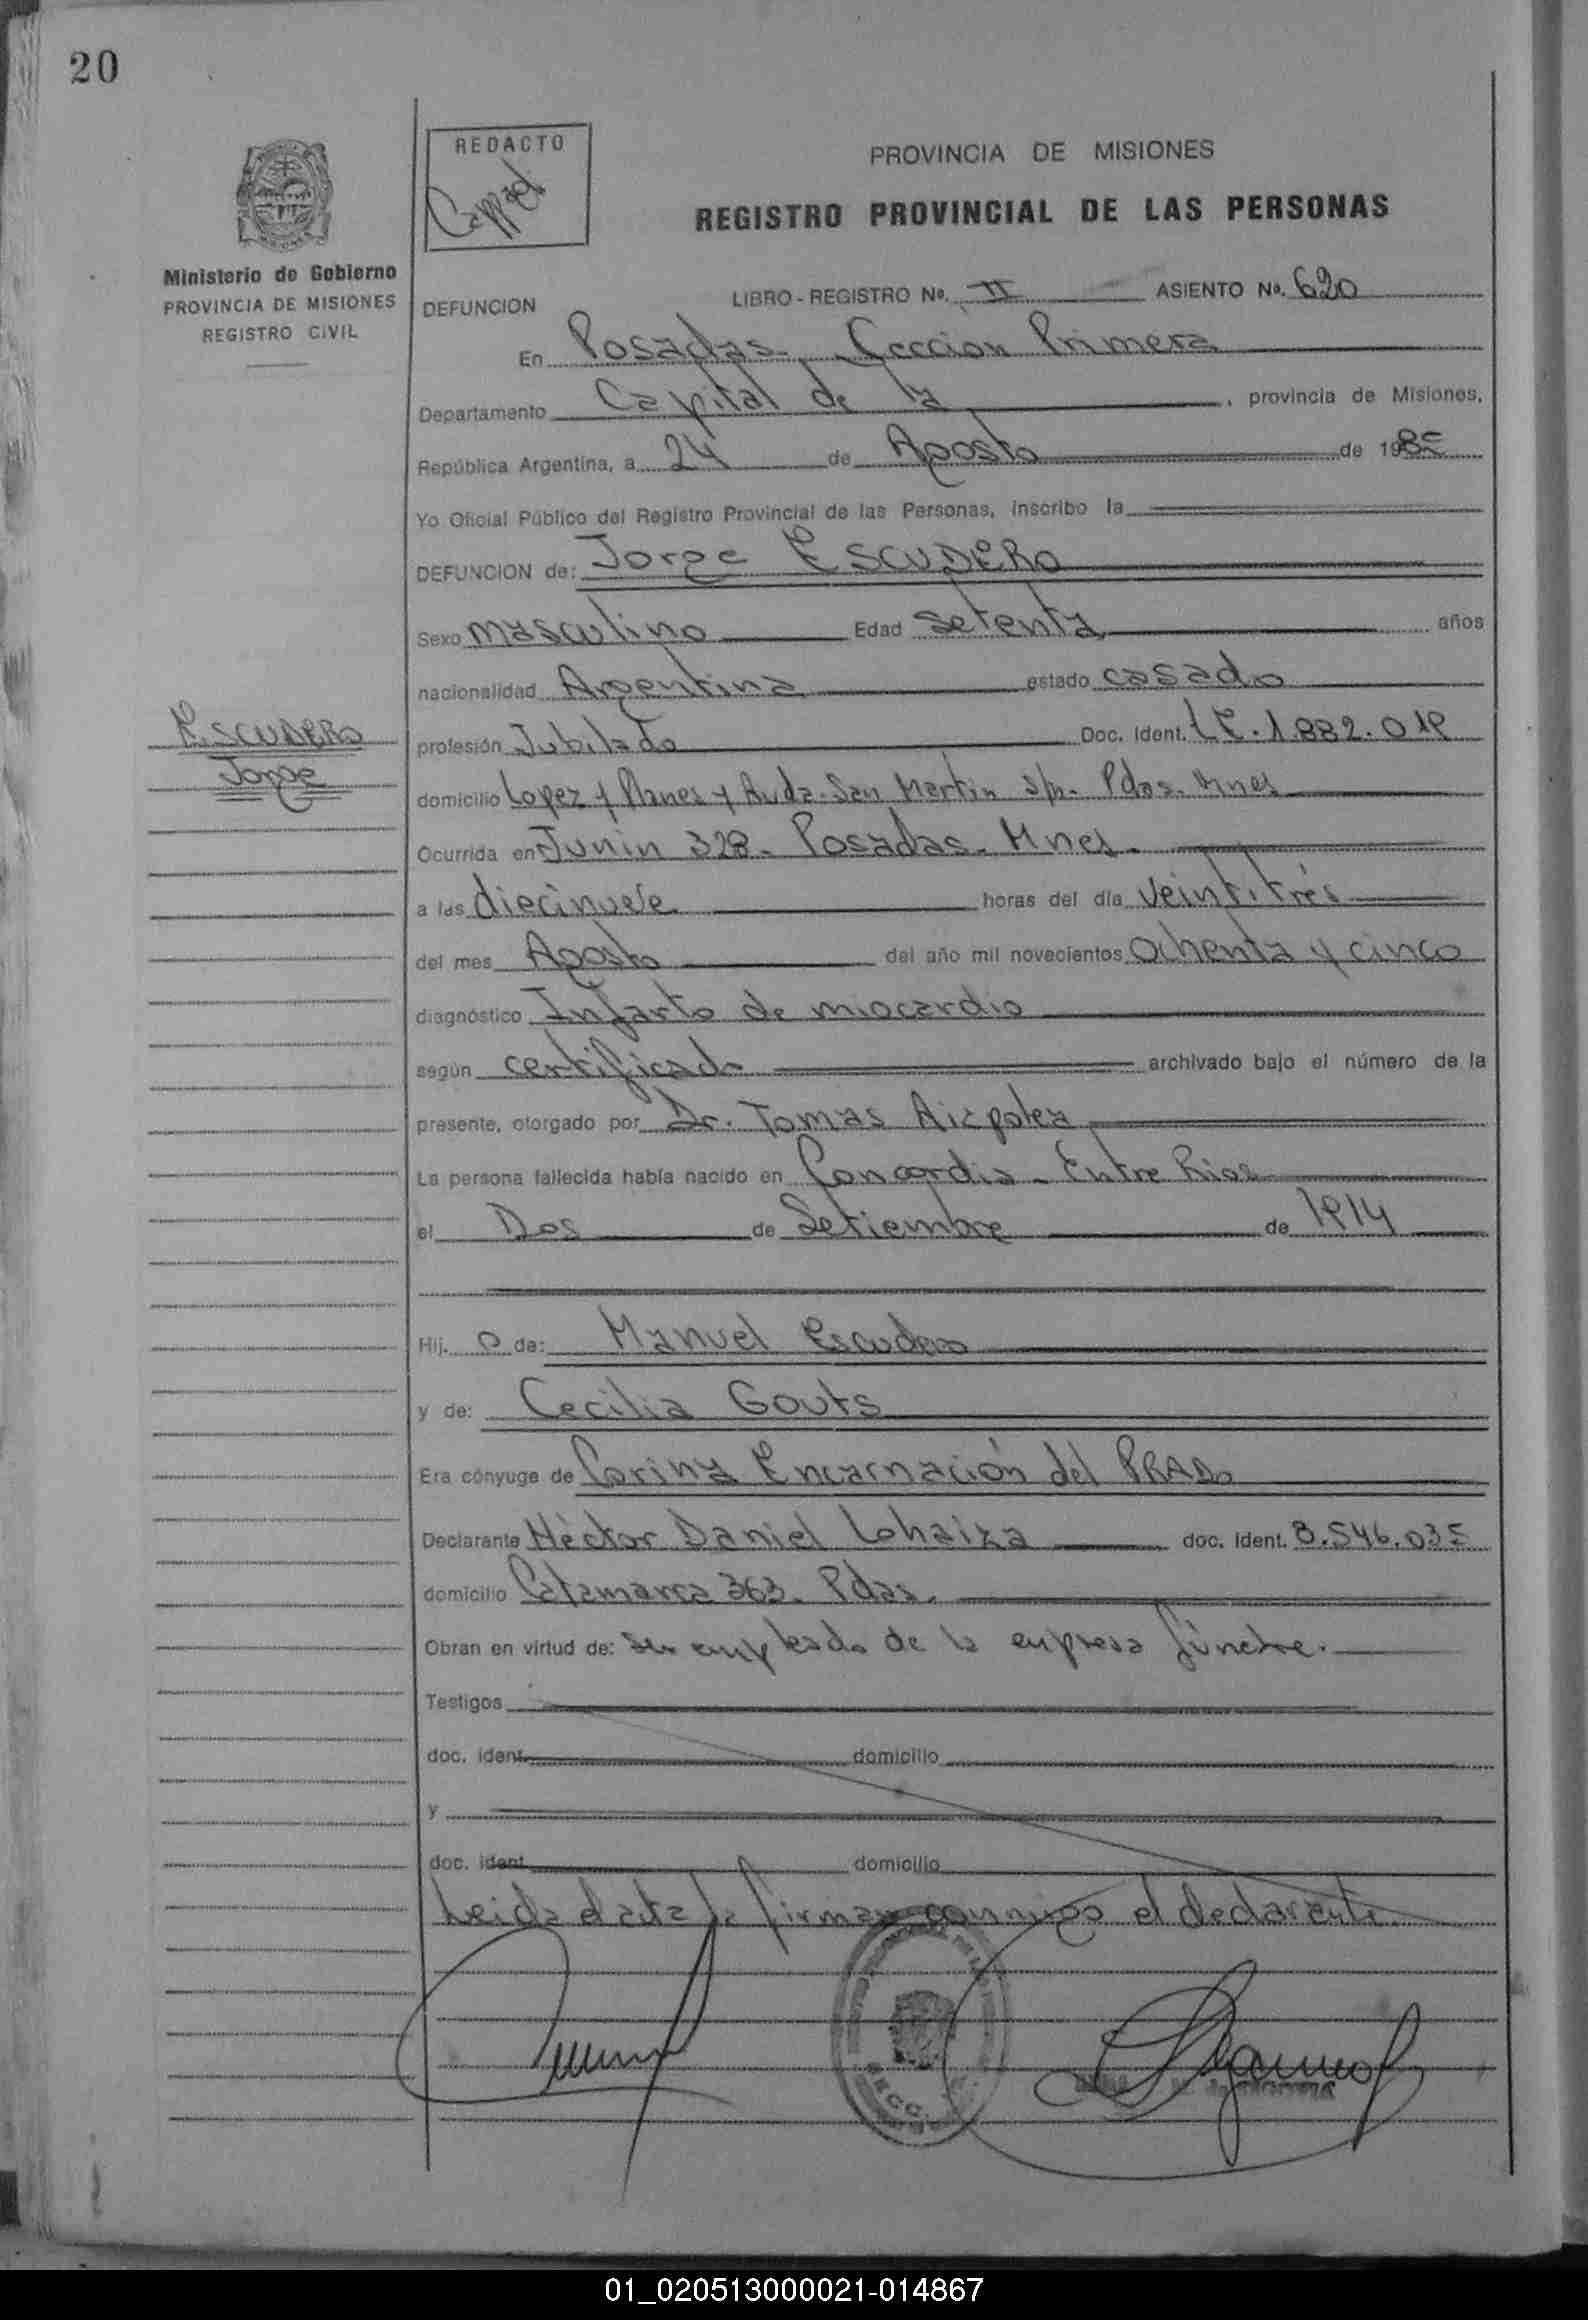 20
REDACTO
PROVINCIA DE MISIONES
REGISTRO PROVINCIAL DE LAS PERSONAS
Ministerio de Gobierno
PROVINCIA DE MISIONES
REGISTRO CIVIL
DEFUNCION LIBRO - REGISTRO Nº. II ASIENTO Nº. 620
En Posadas. Sección Primera
Departamento Capital de la , provincia de Misiones,
República Argentina, a 24 de Agosto de 1985
Yo Oficial Público del Registro Provincial de las Personas, inscribo la
DEFUNCION de: Jorge ESCUDERO
Sexo masculino Edad setenta años
nacionalidad Argentina estado casado
ESCUDERO
Jorge
profesión Jubilado Doc. Ident. LE. 1.882.019
domicilio Lopez y Planes y Avda. San Martin s/n. Pdas. Mnes
Ocurrida en Junin 328. Posadas. Mnes.
a las diecinueve horas del día veintitrés
del mes Agosto del año mil novecientos ochenta y cinco
diagnóstico Infarto de miocardio
según certificado archivado bajo el número de la
presente, otorgado por Dr. Tomas
La persona fallecida había nacido en Concordia - Entre Rios
el Dos de Setiembre de 1914
Hij. o de: Manuel Escudero
y de: Cecilia Gouts
Era cónyuge de Corina Encarnación del PRADO
Declarante Héctor Daniel Lohaiza doc. ident. 8.546.035
domicilio Catamarca 363. Pdas.
Obran en virtud de: ser empleado de la empresa fúnebre.
Testigos
doc. ident. domicilio
y
doc. ident. domicilio
Leida el acta la firman conmigo el declarante.
SECC.
01_020513000021-014867